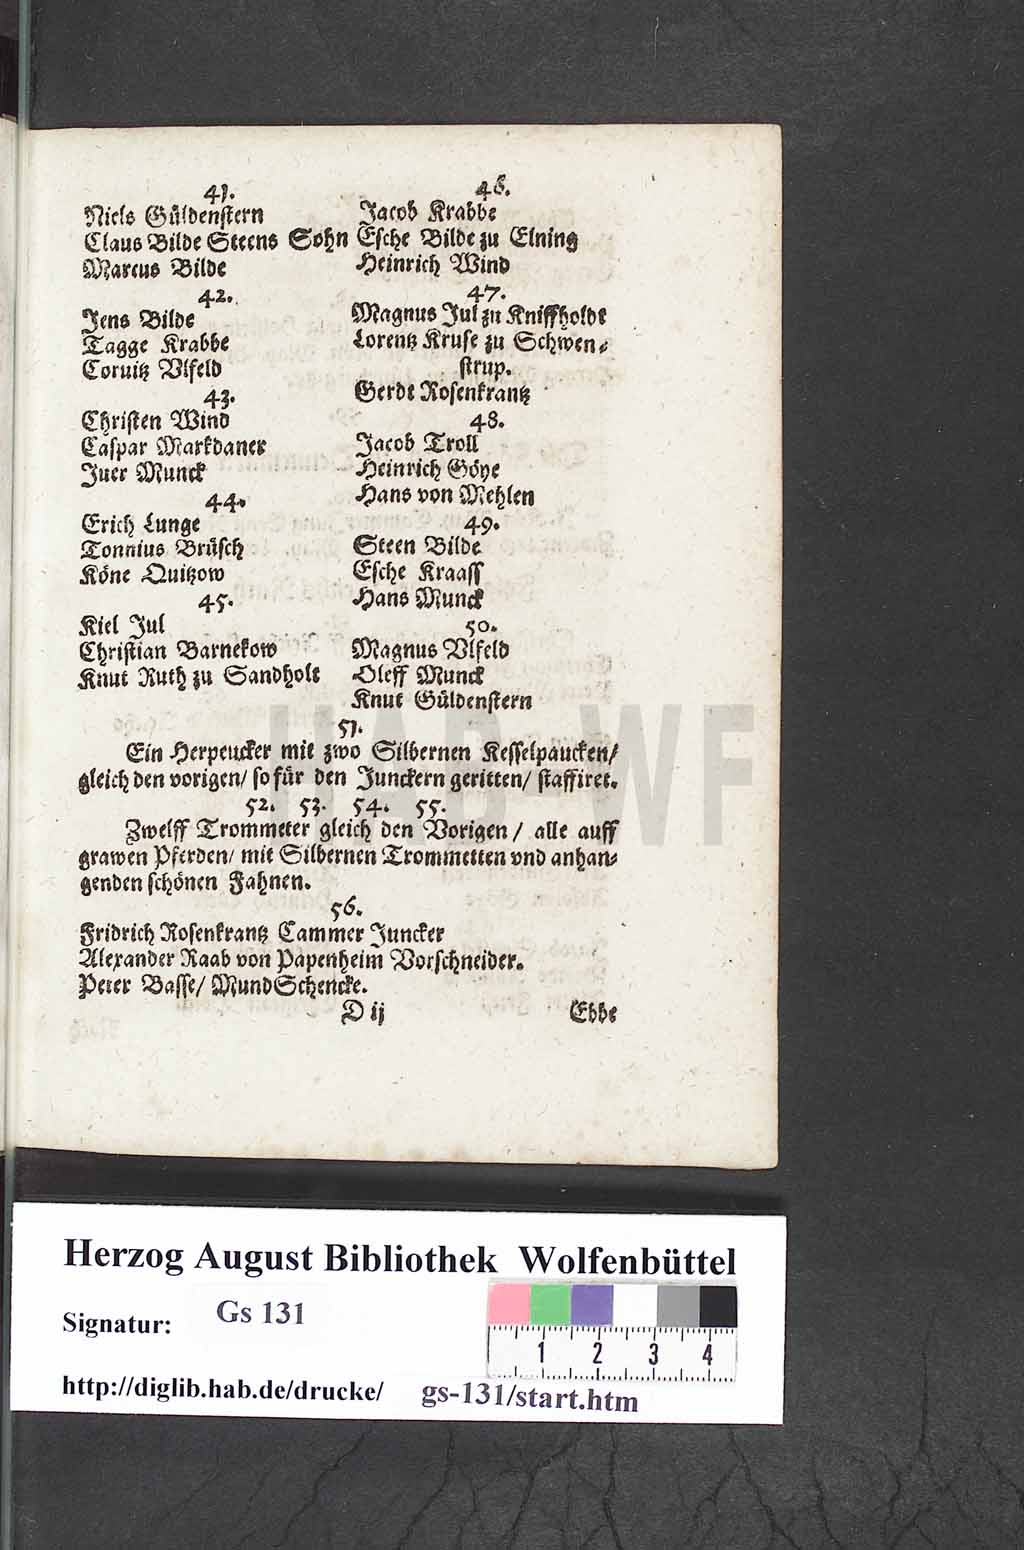 41.
Niels Güldenstern
Claus Bilde Steens Sohn
Marcus Bilde
42.
Jens Bilde
Tagge Krabbe
Coruitz Vlfeld
43.
Christen Wind
Caspar Markdaner
Juer Munck
44.
Erich Lunge
Tonnius Brüsch
Köne Quitzow
45.
Kiel Jul
Christian Barnekow
Knut Ruth zu Sandholt
46.
Jacob Krabbe
Esche Bilde zu Elning
Heinrich Wind
47.
Magnus Jul zu Kniffholdt
Lorentz Kruse zu Schwen-
strup.
Gerdt Rosenkrantz
48.
Jacob Troll
Heinrich Göye
Hans von Mehlen
49.
Steen Bilde
Esche Kraass
Hans Munck
50.
Magnus Vlfeld
Oleff Munck
Knut Güldenstern
51.
Ein Herpeucker mit zwo Silbernen Kesselpaucken/
gleich den vorigen/ so für den Junckern geritten/ staffiret.
52. 53. 54. 55.
Zwelff Trommeter gleich den Vorigen/ alle auff
grawen Pferden/ mit Silbernen Trommetten vnd anhan-
genden schönen Fahnen.
56.
Fridrich Rosenkrantz Cammer Juncker
Alexander Raab von Papenheim Vorschneider.
Peter Basse/ MundSchencke.
D ij Ebbe
HAB-WF
Herzog August Bibliothek Wolfenbüttel
Signatur: Gs 131
1 2 3 4
http://diglib.hab.de/drucke/ gs-131/start.htm